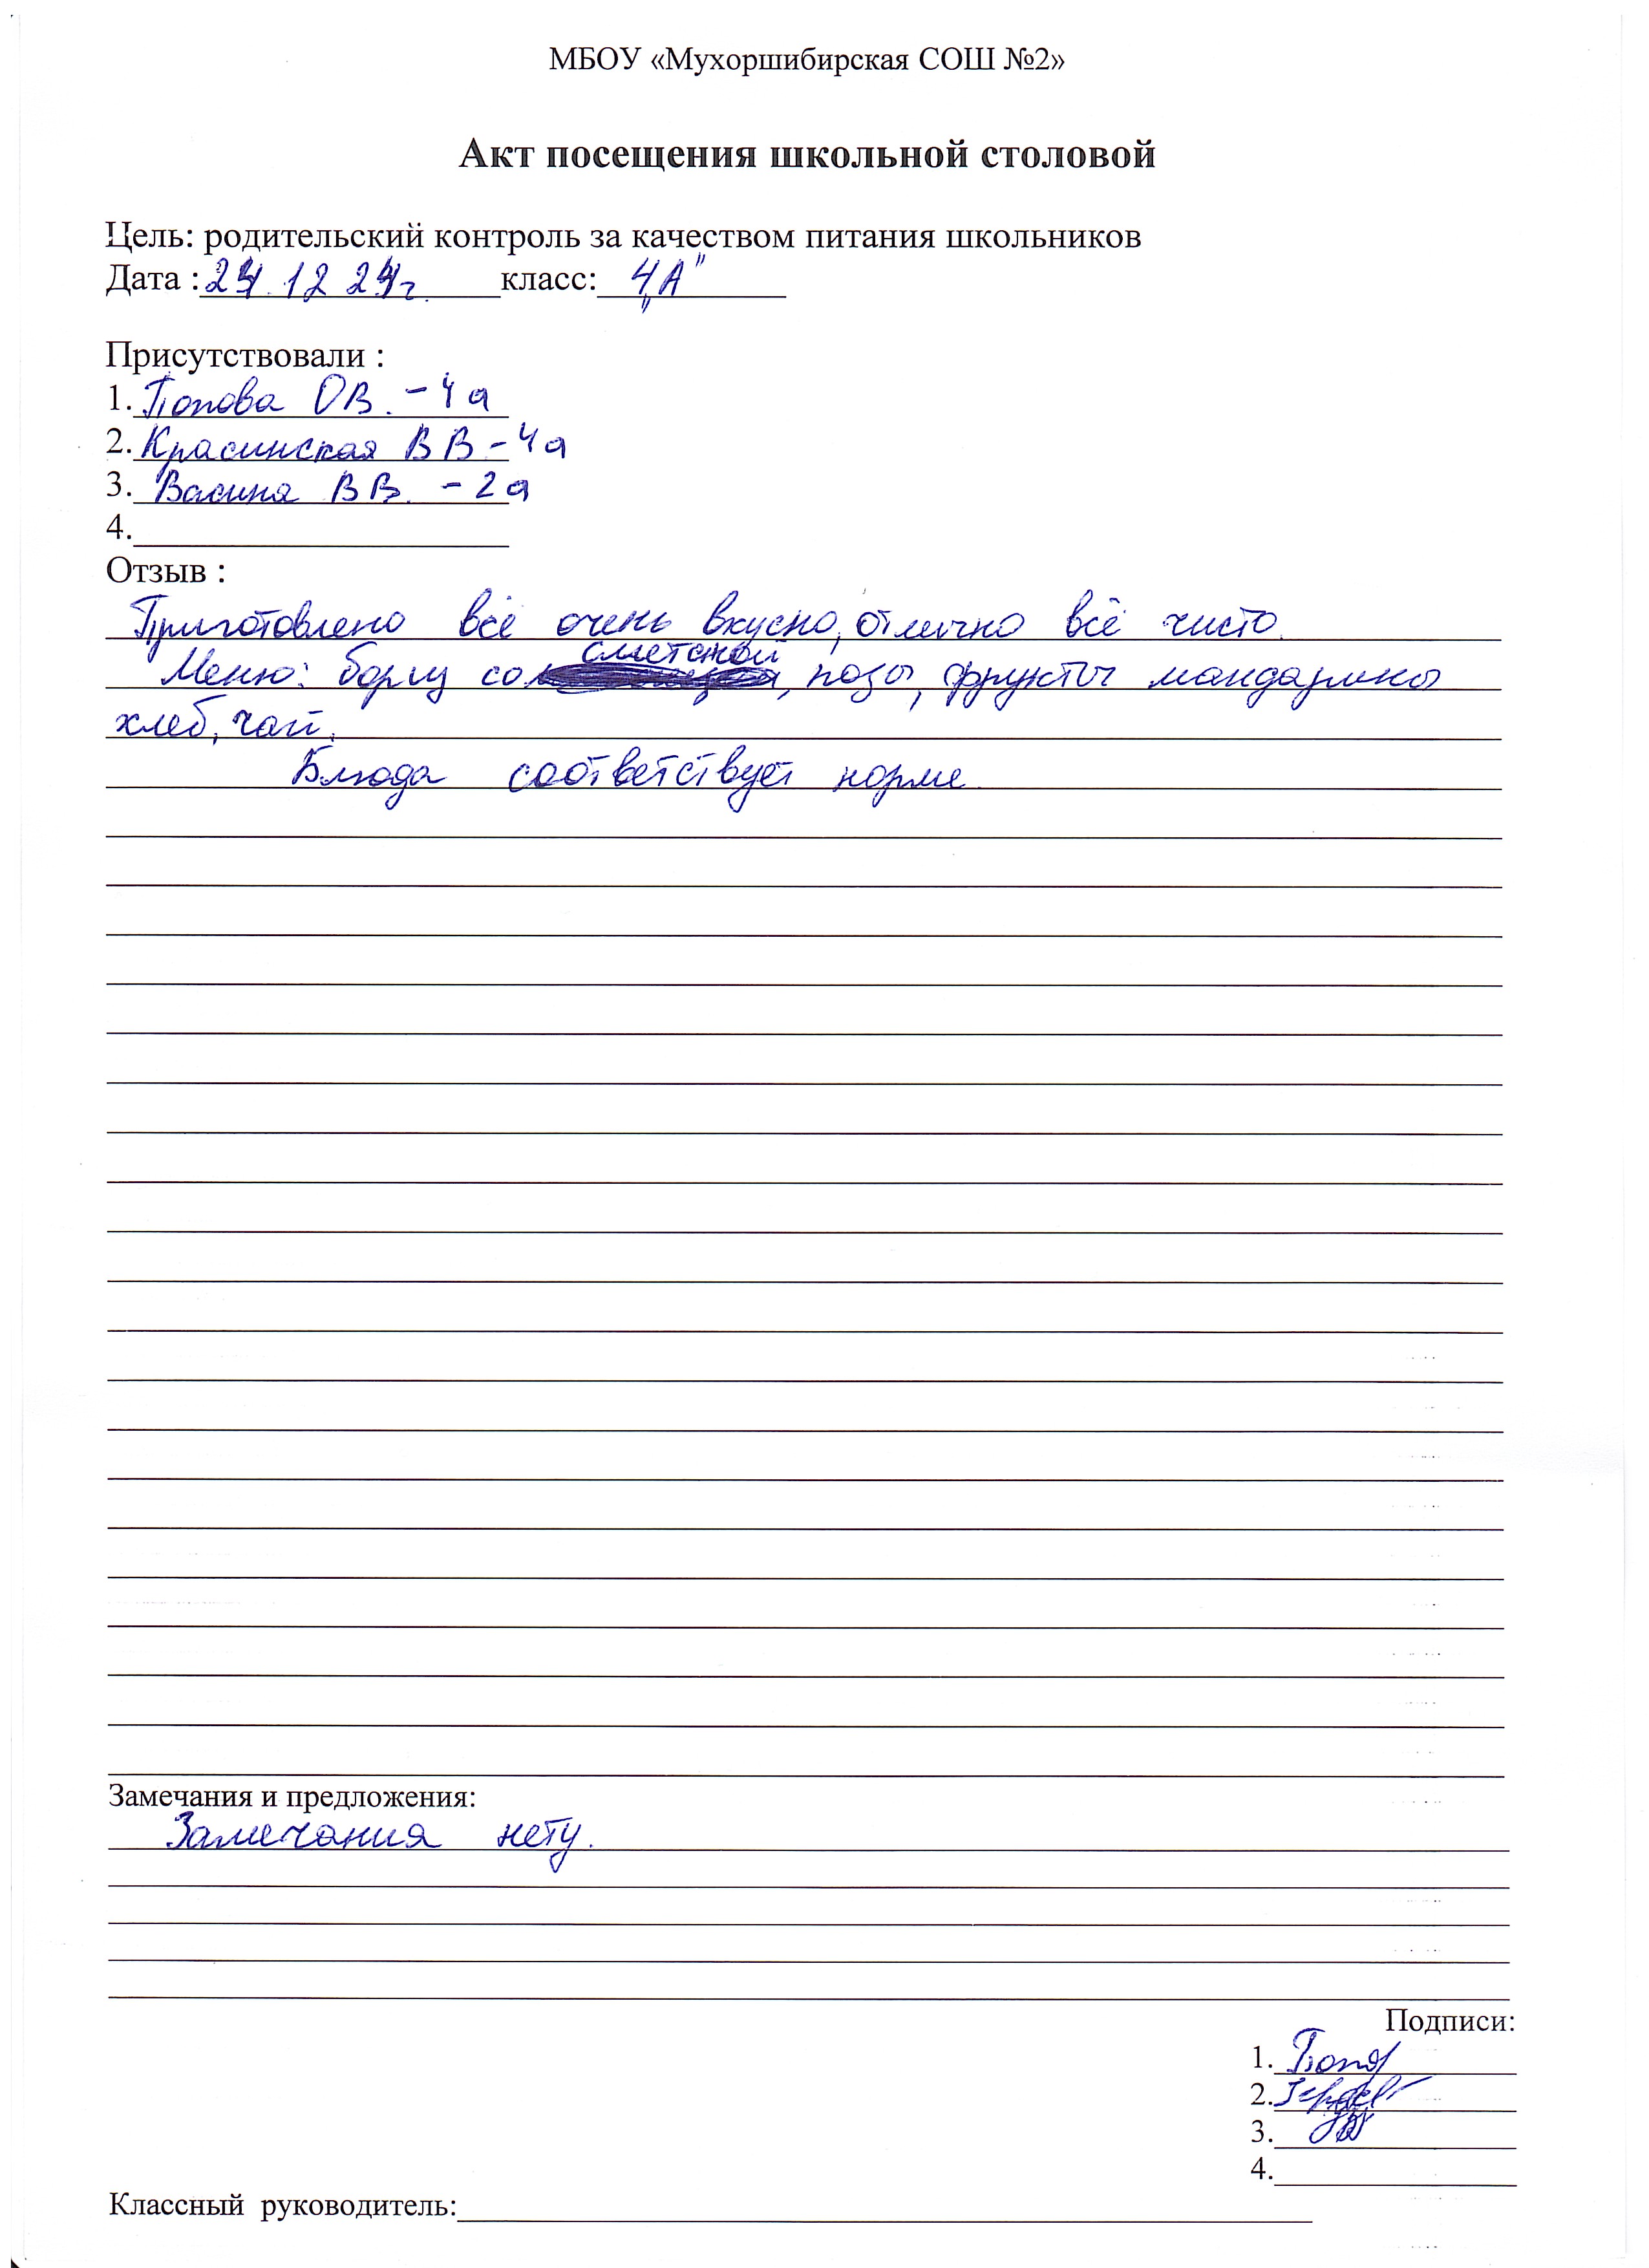 МБОУ «Мухоршибирская СОШ №2»
Акт посещения школьной столовой
Цель: родительский контроль за качеством питания школьников
Дата : 24. 12 24г. класс: 4 „А"
Присутствовали :
1. Попова ОВ. - 4 а
2. Красинская ВВ - 4а
3. Васина ВВ. - 2 а
4.
Отзыв :
Приготовлено всё очень вкусно, отлично всё чисто.
Меню: борщ со сметаной, позы, фрукты мандарины
хлеб, чай.
Блюда соответствует норме
Замечания и предложения:
Замечания нету.
Подписи:
1.
2.
3.
4.
Классный руководитель: